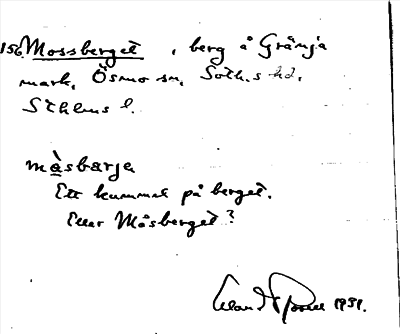 156. Mossberget, berg å Gränja
mark, Ösmo sn, Soth.s hd,
Sthlms l.
måsbarje
Ett kummel på berget.
Eller Måsberget?
1951.